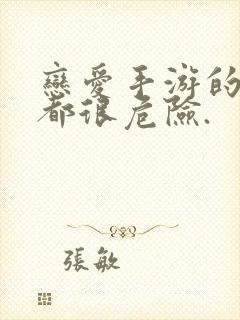 戀愛手游的
都很危險.
張敏